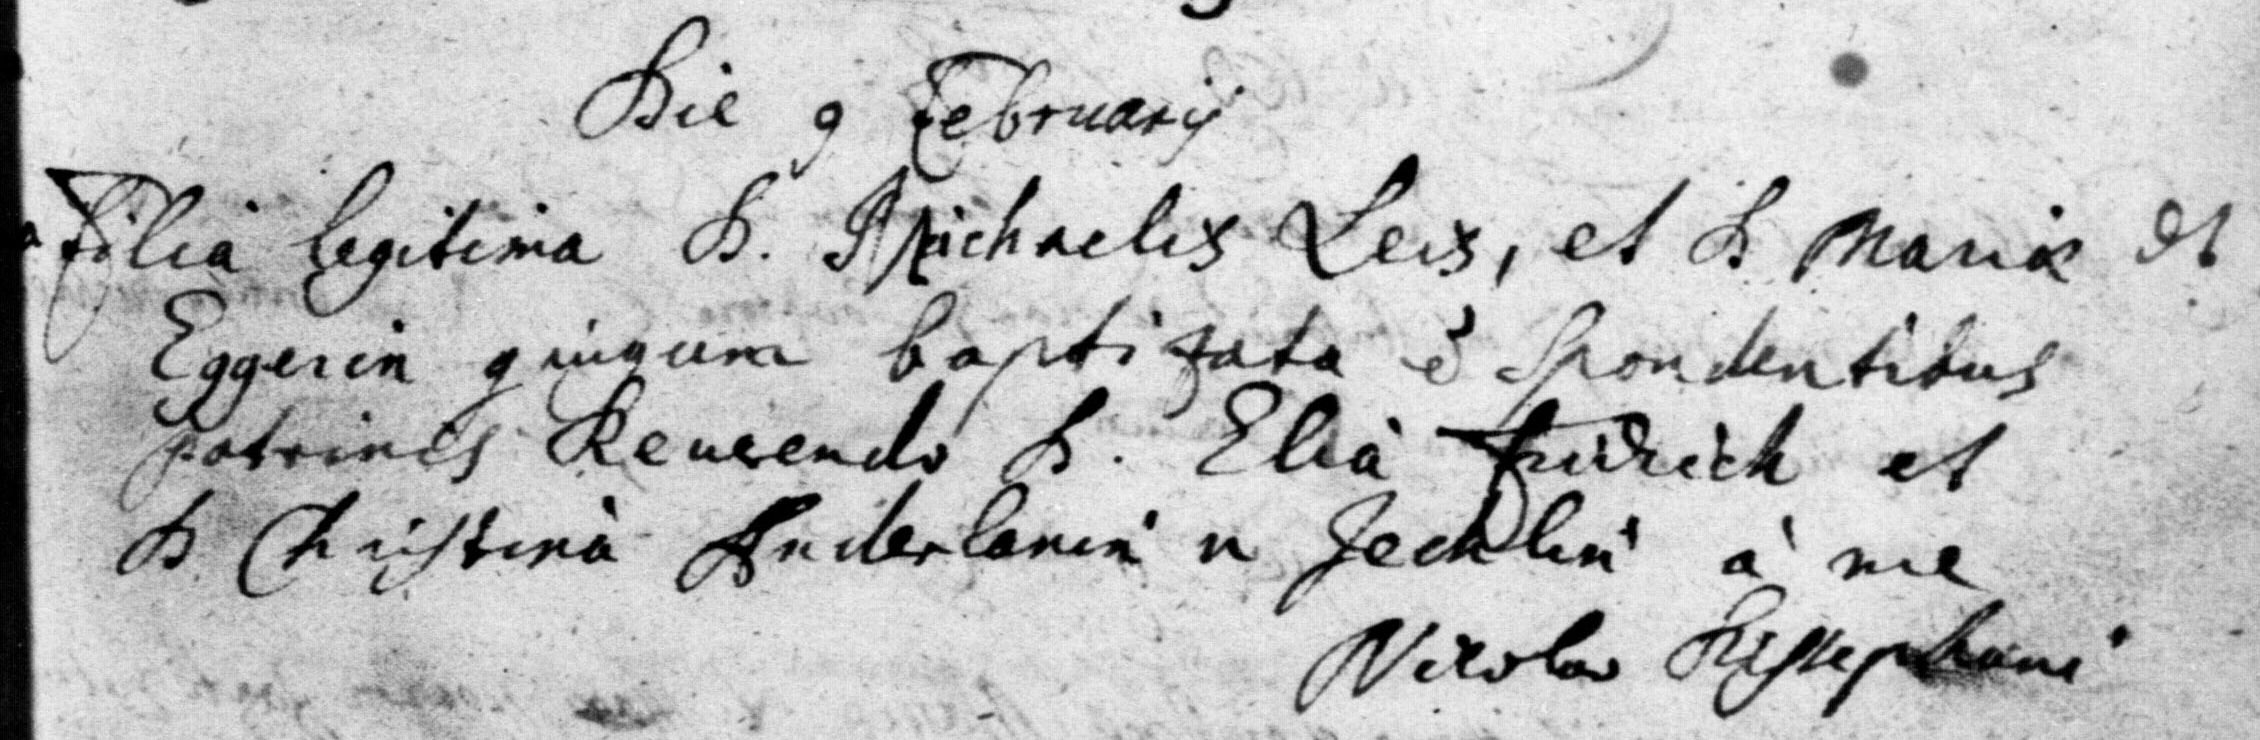 Die 9 Februarij
Filia legitima D. Michaelis Leis, et D Mariæ et
Eggerin conjugum baptizata é Spondentibus
patrinis Reverendo D. Eliâ Fridrich et
D Christinâ Anderlanin n Jechlin à me
Nicolao